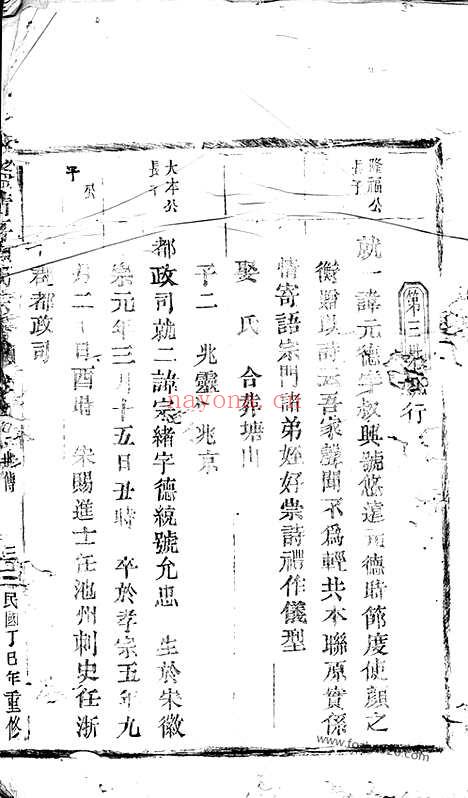 第三世 行
隆福公
長子
就一諱元德字叔興號悠遠 德時節度使顏之
衡贈以詩云吾家聲聞不爲輕共本聯原實係
情寄語宗門諸弟姪好崇詩禮作儀型
娶 氏 合葬塘山
子二 兆靈 兆京
大本公
長子
都政司就二諱宗緒字德統號允忠 生於宋徽
宗元年三月十五日丑時 卒於孝宗五年九
月二十日酉時 宋賜進士任池州刺史任浙
都政司
民國丁巳年重修
nayona.cn
www.fozupu.com